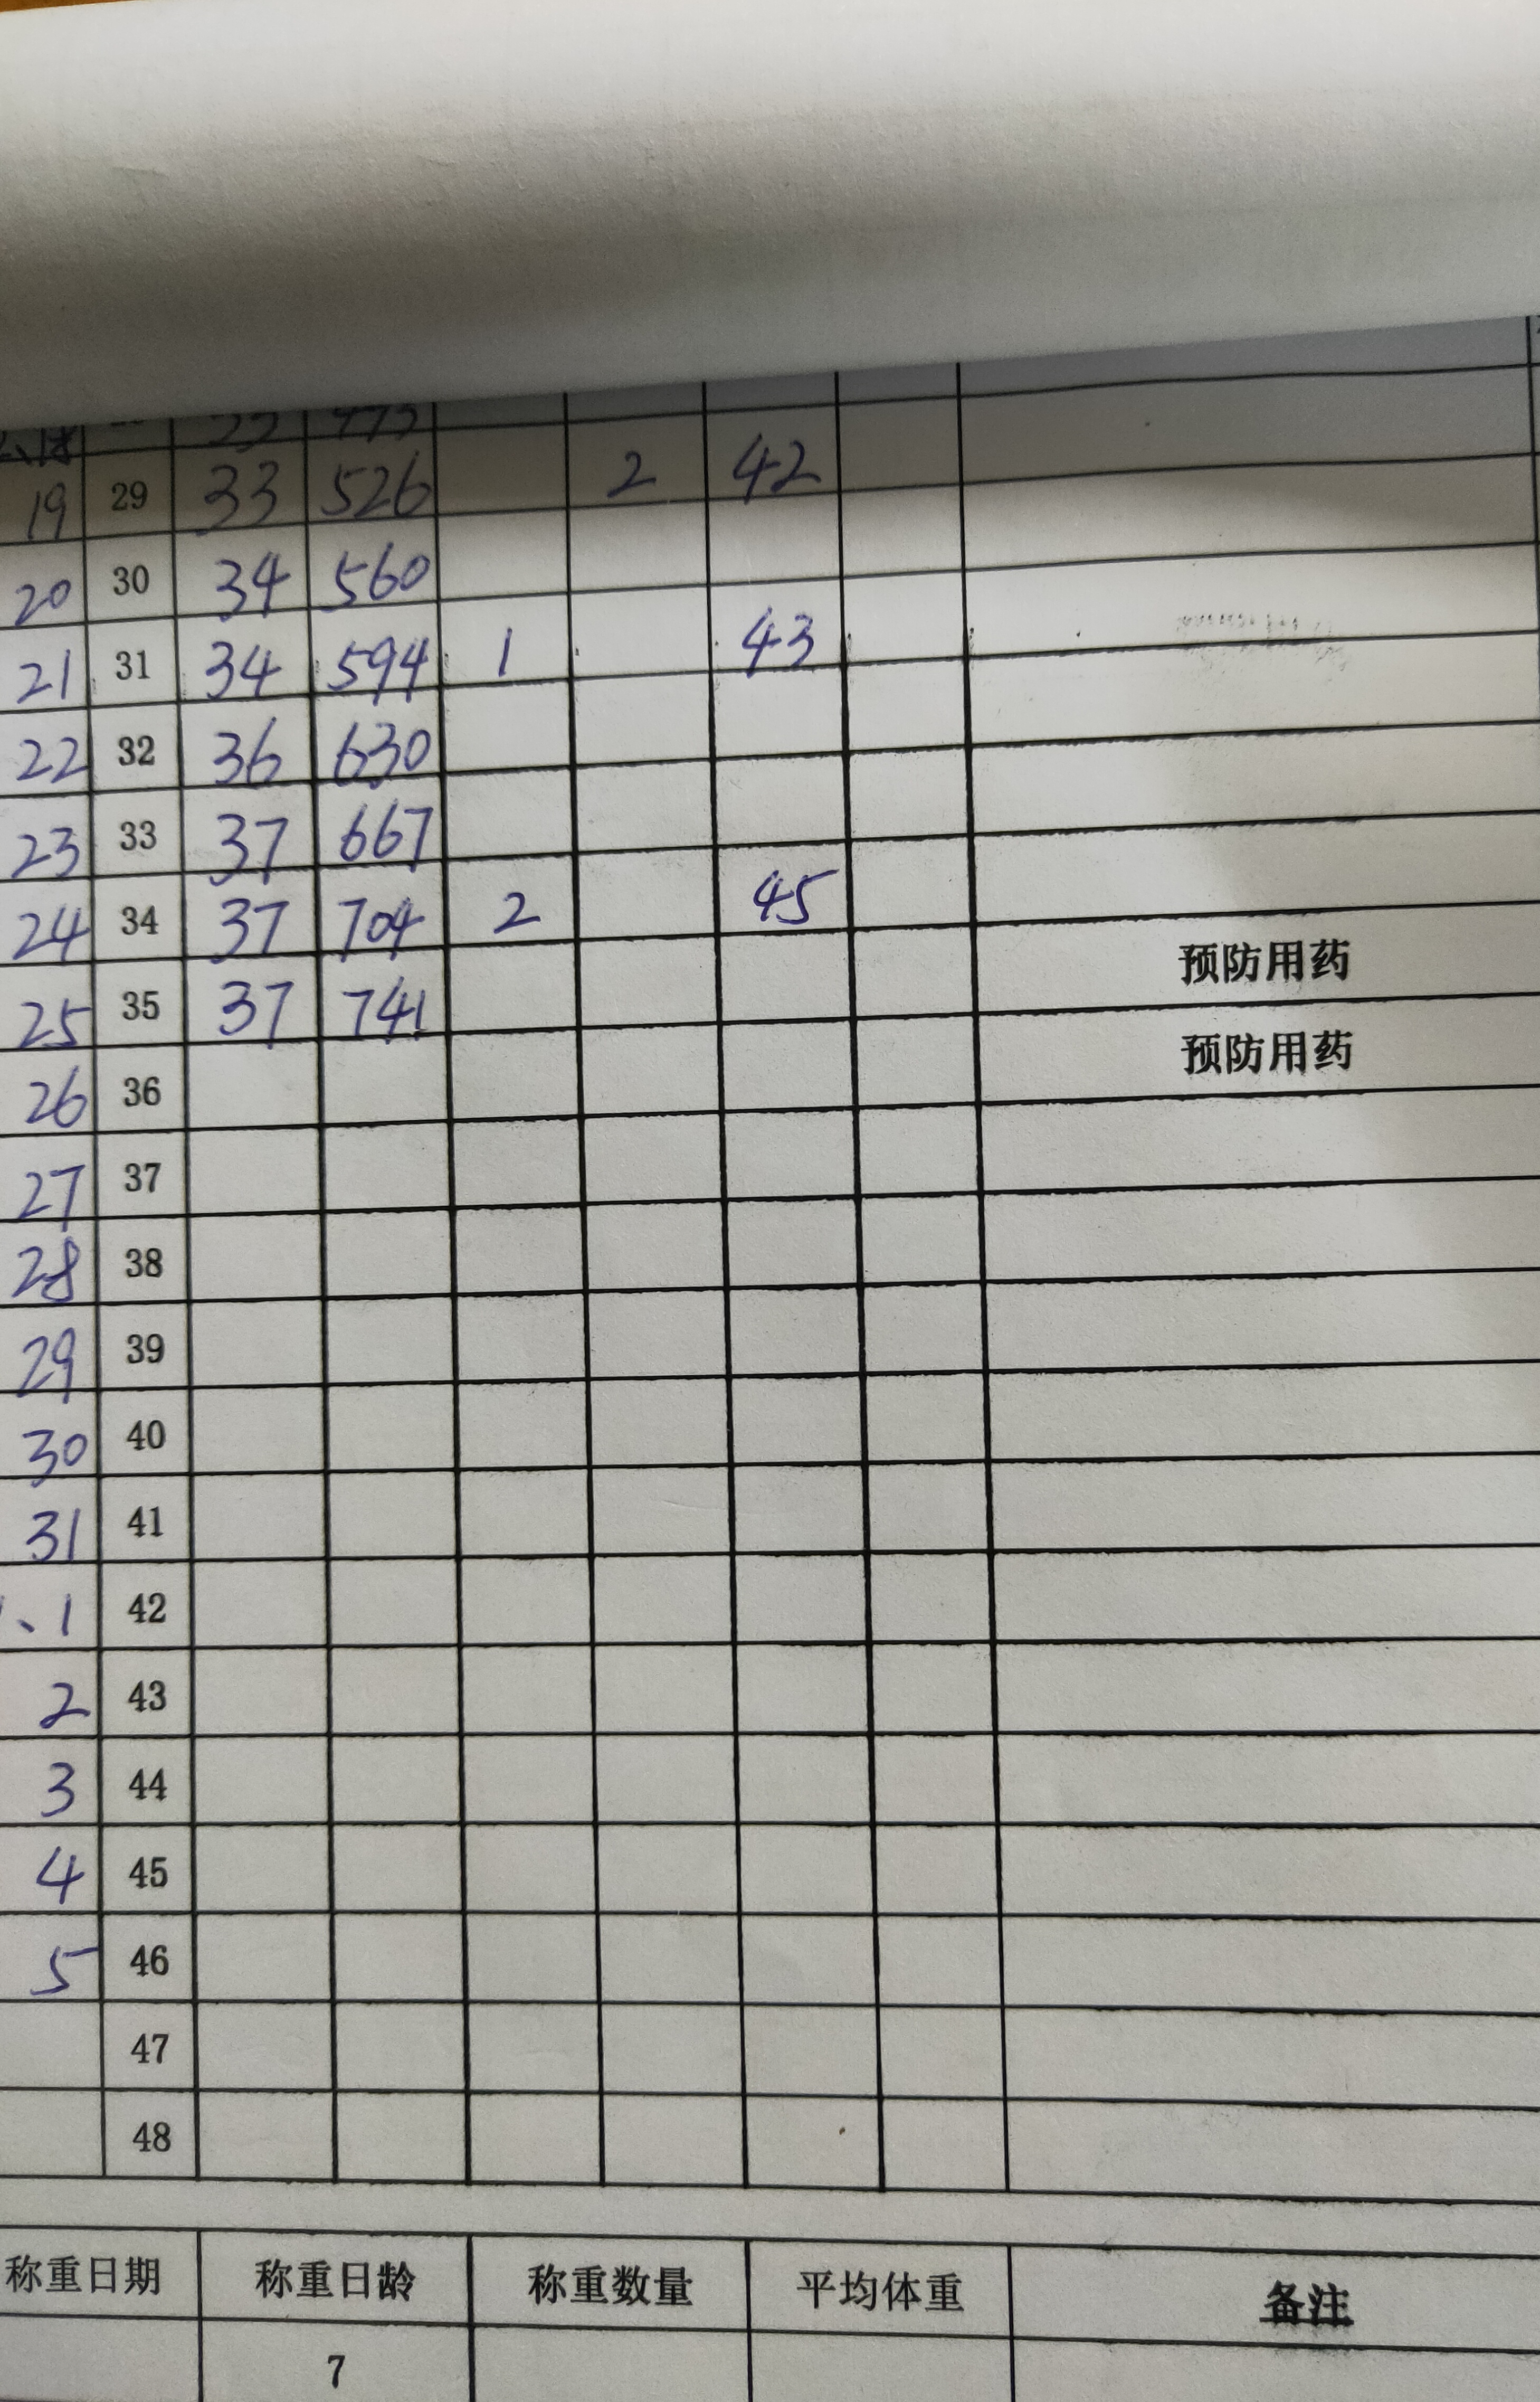 19 29 33 526 2 42
20 30 34 560
21 31 34 594 1 43
22 32 36 630
23 33 37 667
24 34 37 704 2 45
预防用药
25 35 37 741
预防用药
26 36
27 37
28 38
29 39
30 40
31 41
、1 42
2 43
3 44
4 45
5 46
47
48
称重日期 称重日龄 称重数量 平均体重 备注
7